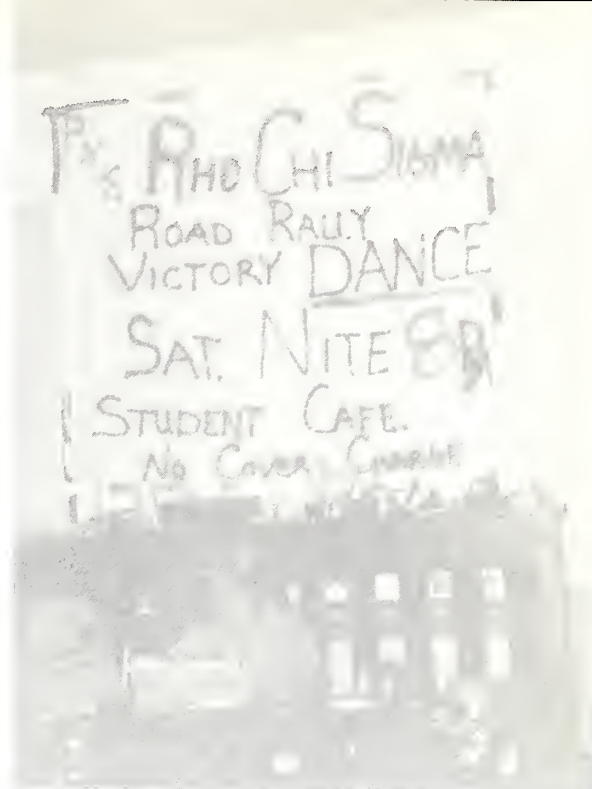 RHO CHI SIGMA
ROAD RALLY
VICTORY DANCE
SAT. NITE
STUDENT CAFE.
NO COVER CHARGE